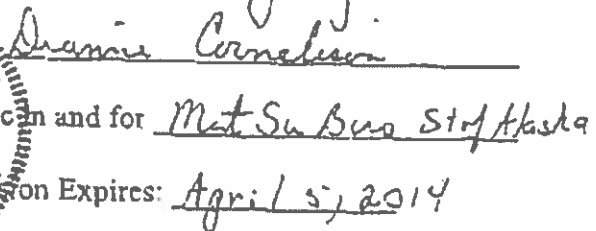 Diannie Cornelison
c in and for Mat Su Buro St of Alaska
on Expires: April 5, 2014